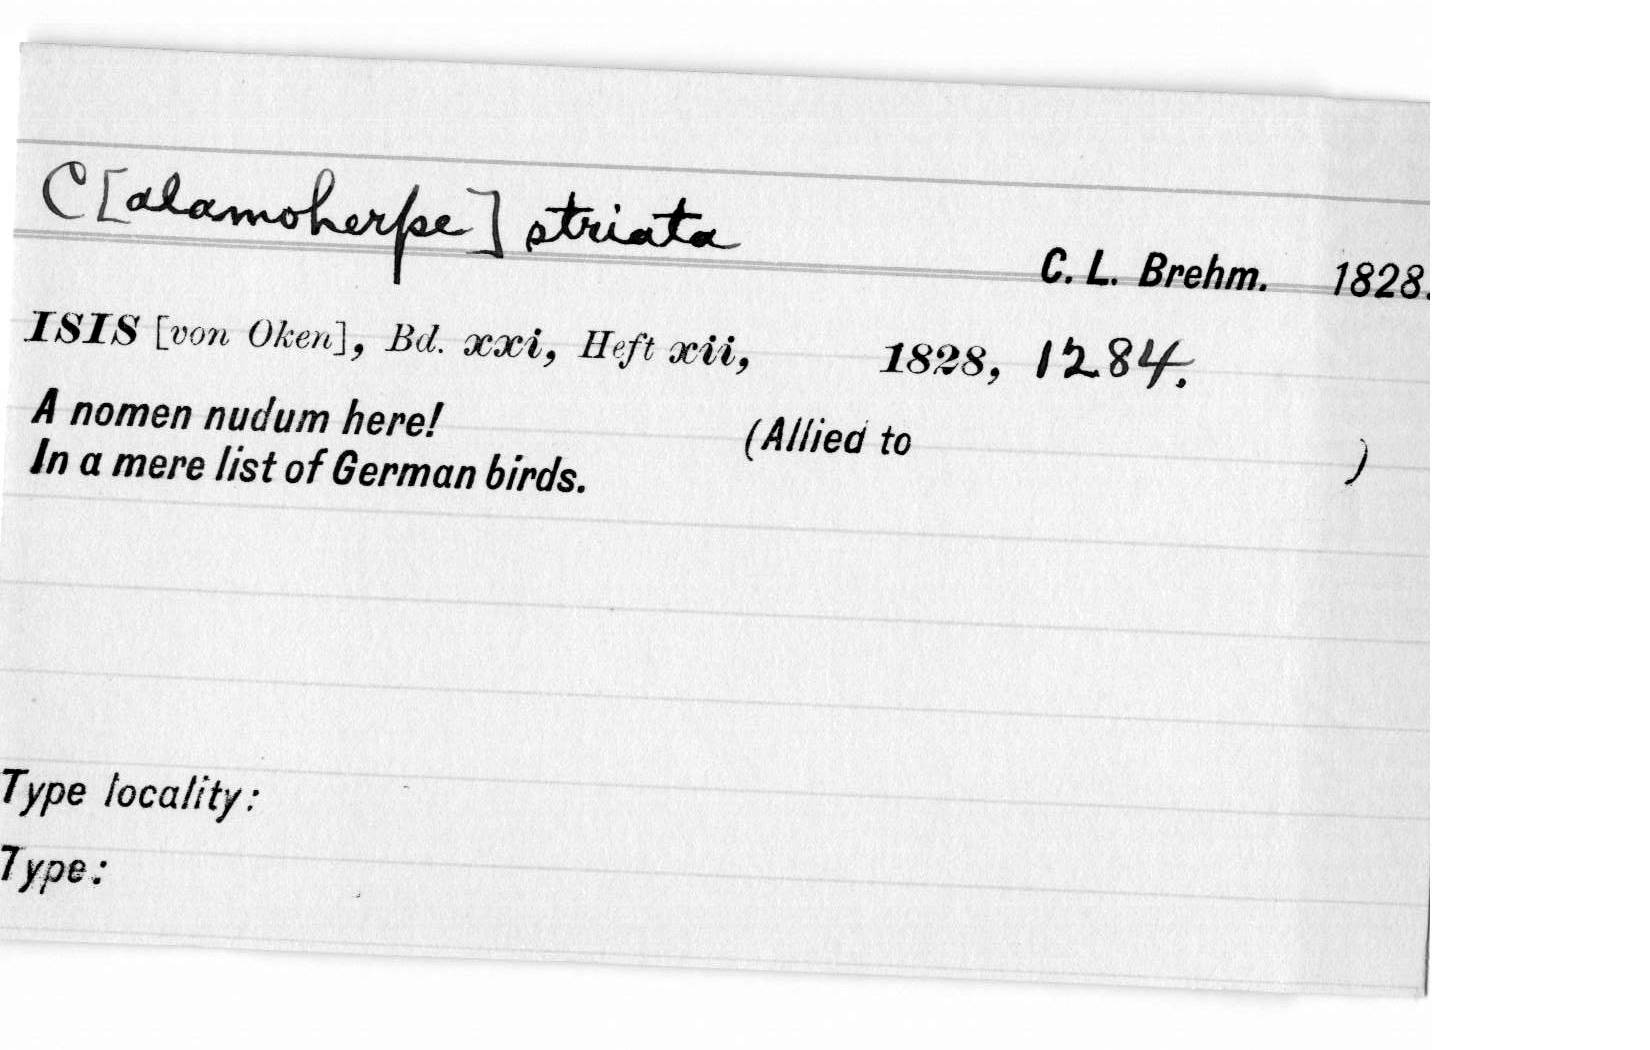 C[alamoherpe] striata
C. L. Brehm. 1828.
ISIS [von Oken], Bd. xxi, Heft xii, 1828, 1284.
A nomen nudum here! (Allied to )
In a mere list of German birds.
Type locality:
Type: